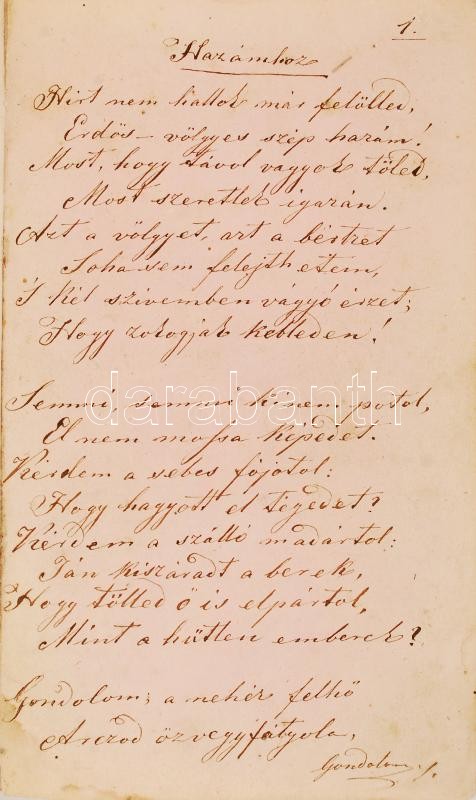 1.
Hazámhoz
Hirt nem hallok már felölled,
Erdös – völgyes szép hazám!
Most, hogy távol vagyok töled,
Most szeretlek igazán.
Azt a völgyet, azt a bérczet
Soha sem felejthetem,
S kél szivemben vágyó érzet;
Hogy zokogjak kebleden!
Semmi, semmi ki nem potol,
El nem mossa képedet.
Kérdem a sebes fojótol:
Hogy hagyott el tégedet?
Kérdem a szálló madártol:
Tán kiszáradt a berek,
Hogy tölled ö is elpártol,
Mint a hütlen emberek?
Gondolom; a nehéz felhö
Arczod özvegyfátyola,
Gondolom,
darabanth